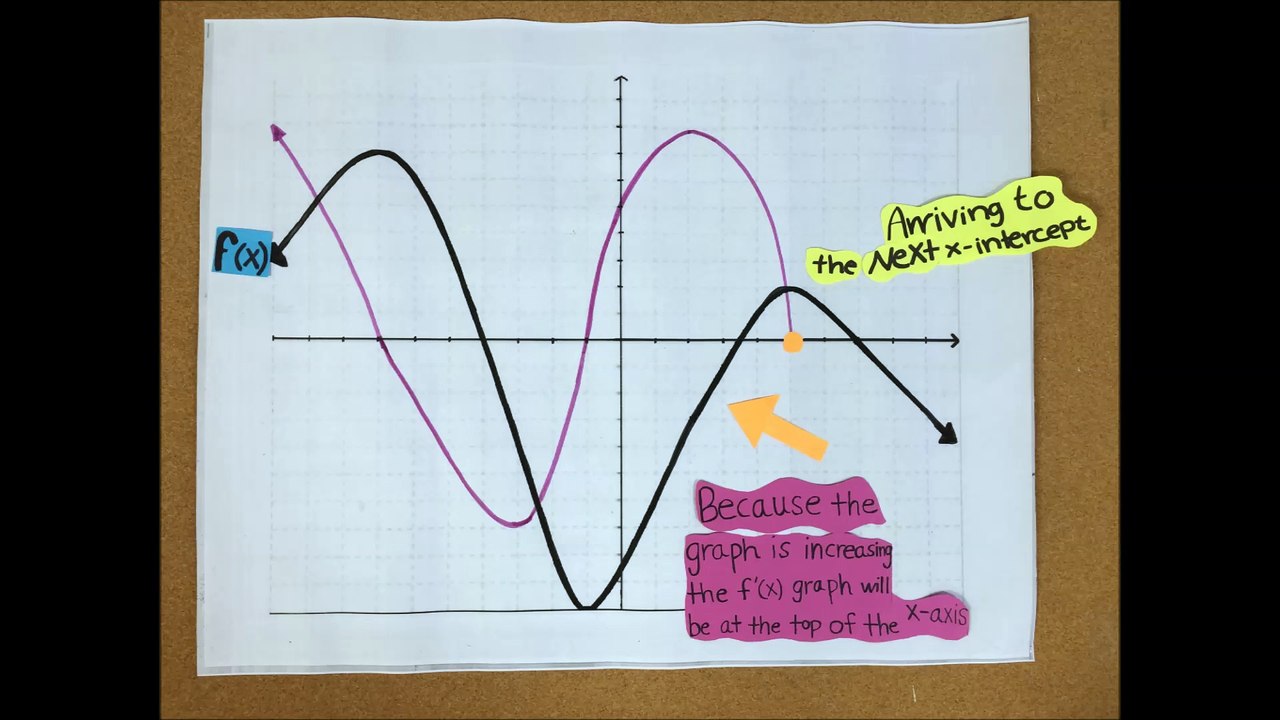 f(x)
Arriving to
the Next x-intercept
Because the
graph is increasing
the f'(x) graph will
be at the top of the x-axis